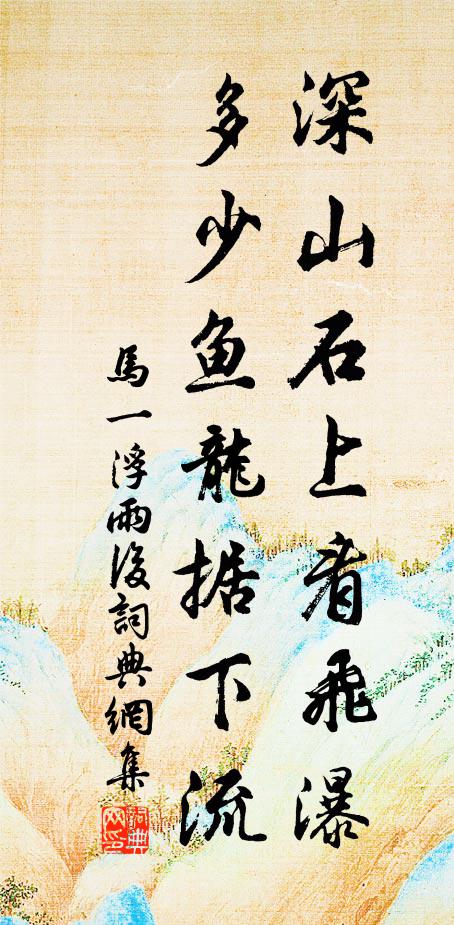 深山石上看飛瀑
多少魚龍据下流
馬一浮雨後詞典網集
詞典網印